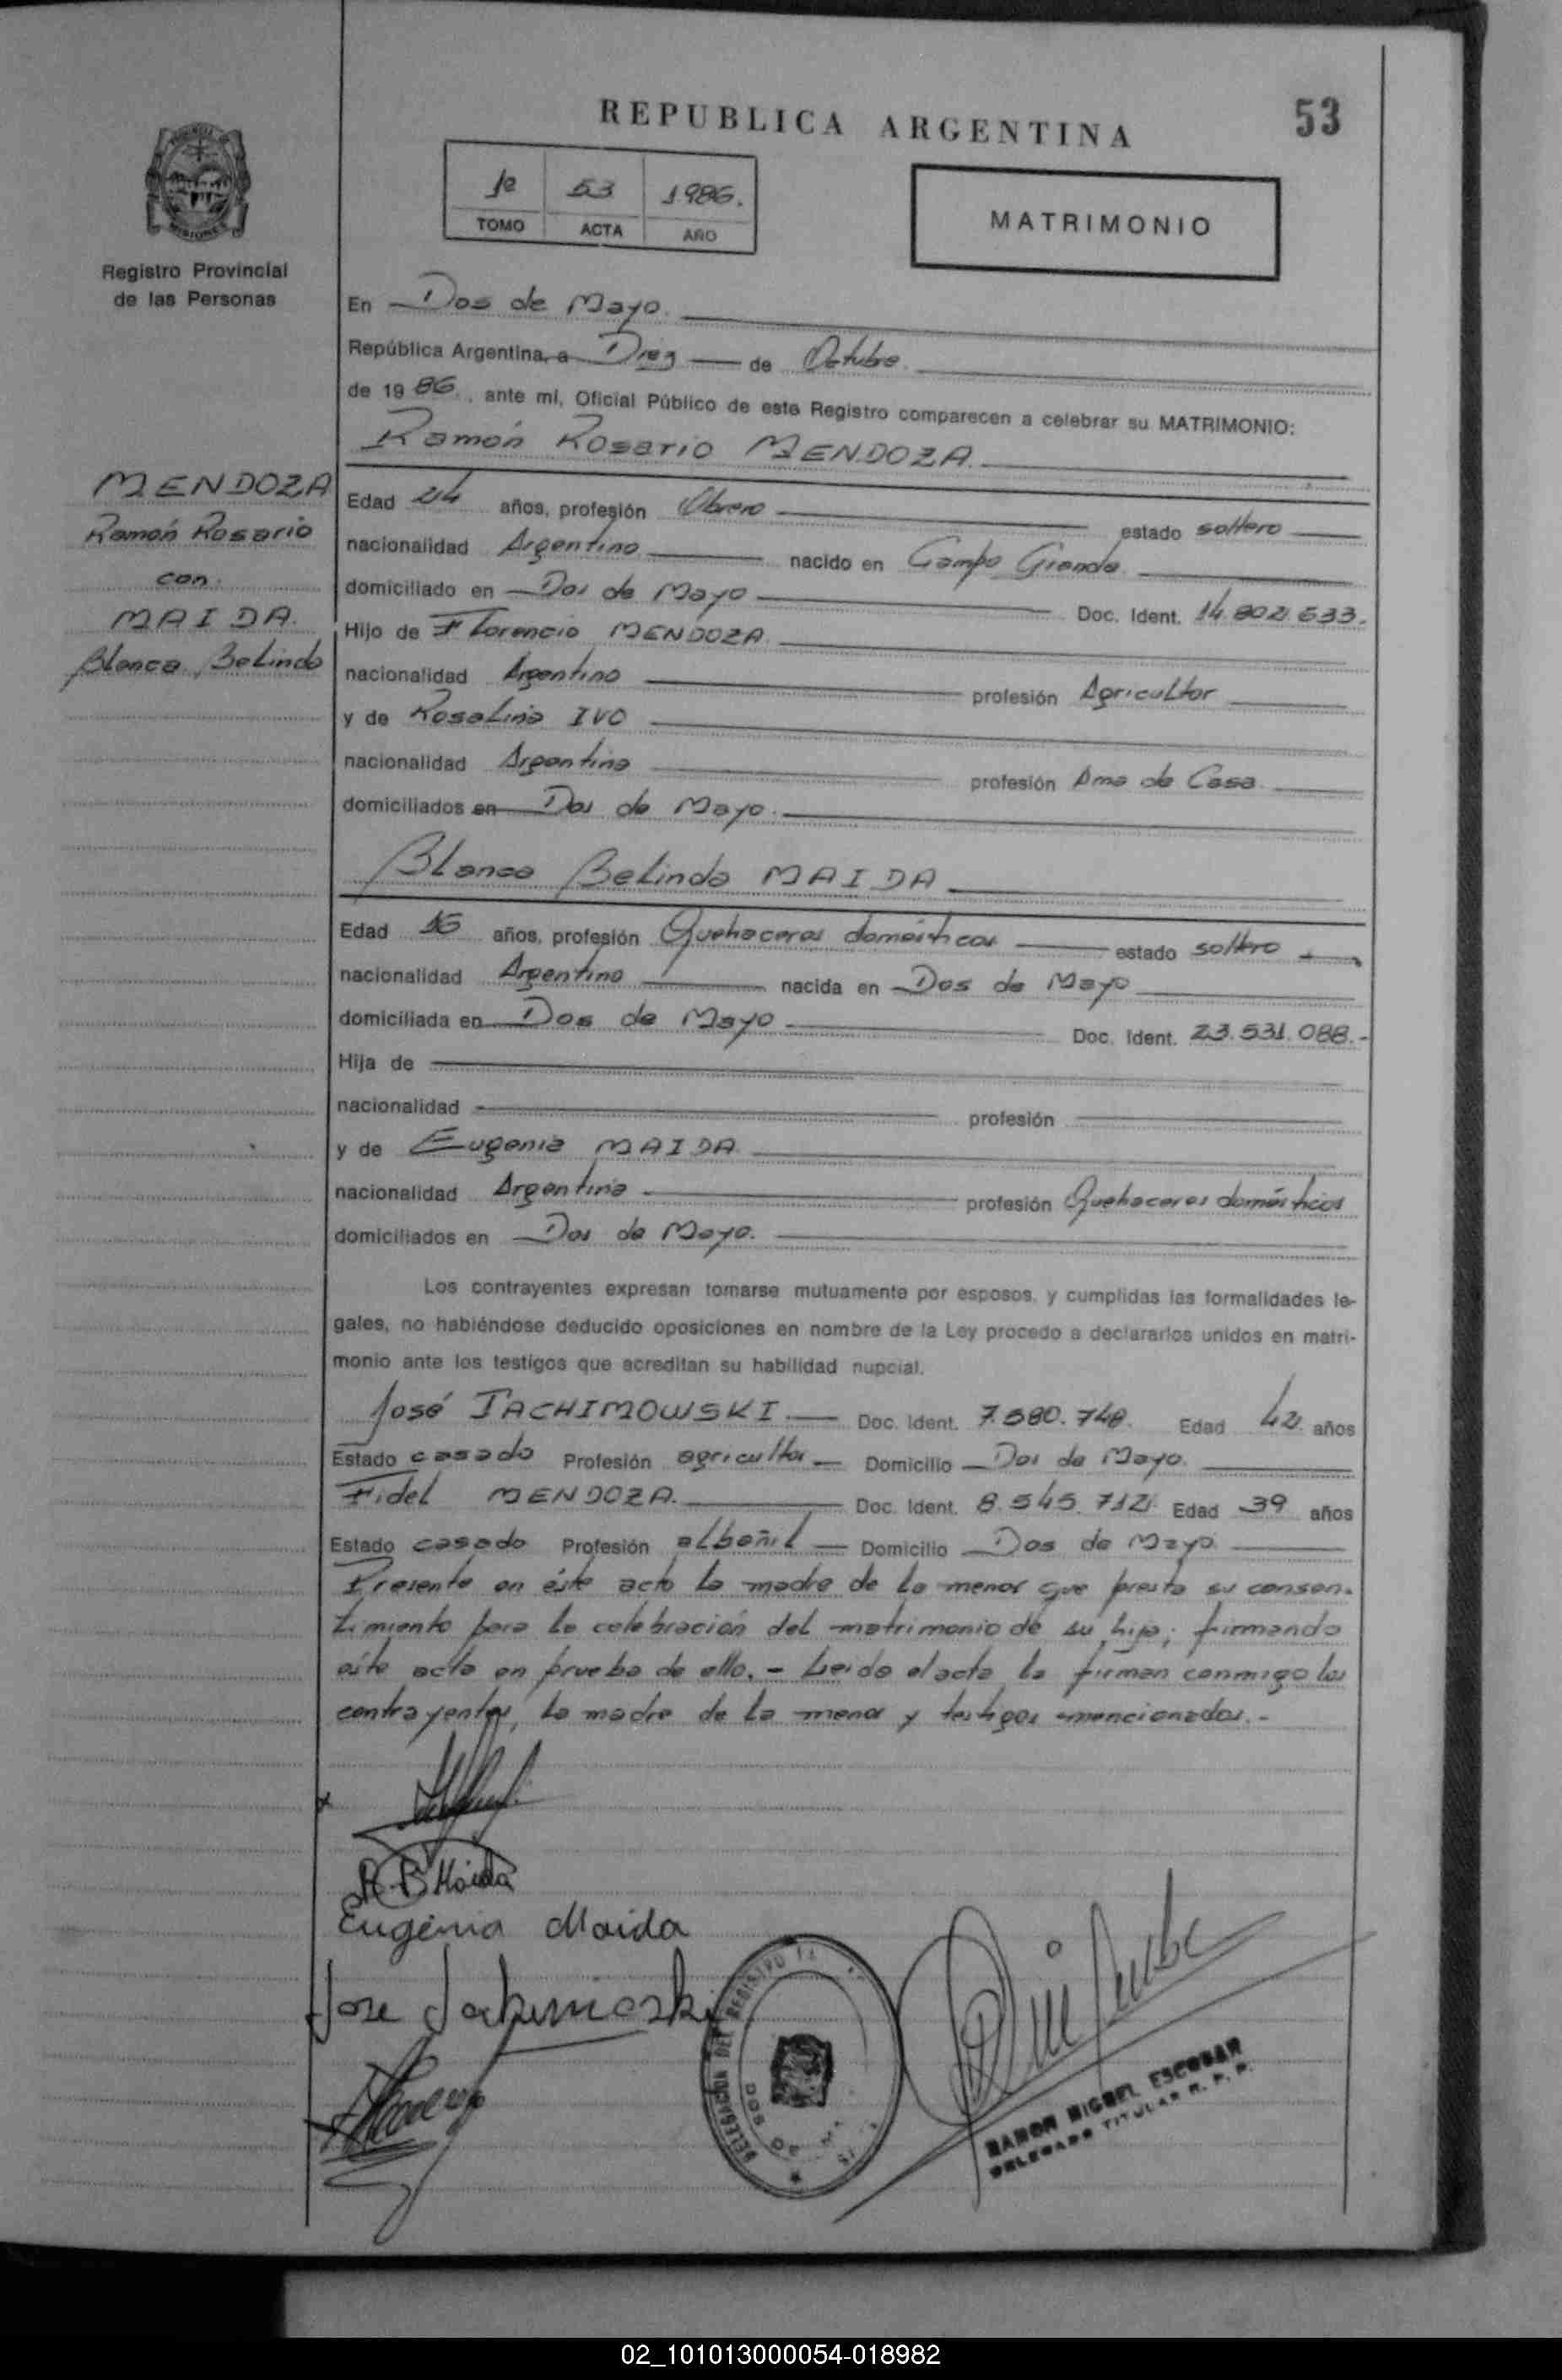 REPUBLICA ARGENTINA
53
1º 53 1986.
TOMO ACTA AÑO
MATRIMONIO
MISIONES
Registro Provincial
de las Personas
MENDOZA
Ramón Rosario
con
MAIDA.
Blanca Belinda
En Dos de Mayo.
República Argentina, a Diez de Octubre
de 19 86., ante mi, Oficial Público de este Registro comparecen a celebrar su MATRIMONIO:
Ramón Rosario MENDOZA
Edad 24 años, profesión Obrero estado soltero
nacionalidad Argentino nacido en Campo Grande
domiciliado en Dos de Mayo Doc. Ident. 14.802.633.
Hijo de Florencio MENDOZA
nacionalidad Argentino profesión Agricultor
y de Rosalina IVO
nacionalidad Argentina profesión Ama de Casa
domiciliados en Dos de Mayo.
Blanca Belinda MAIDA
Edad 16 años, profesión Quehaceres domésticos estado soltera
nacionalidad Argentina nacida en Dos de Mayo
domiciliada en Dos de Mayo Doc. Ident. 23.531.088.-
Hija de
nacionalidad profesión
y de Eugenia MAIDA
nacionalidad Argentina profesión Quehaceres domésticos
domiciliados en Dos de Mayo.
Los contrayentes expresan tomarse mutuamente por esposos, y cumplidas las formalidades le-
gales, no habiéndose deducido oposiciones en nombre de la Ley procedo a declararlos unidos en matri-
monio ante los testigos que acreditan su habilidad nupcial.
José JACHIMOWSKI Doc. Ident. 7.580.748. Edad 42 años
Estado casado Profesión agricultor Domicilio Dos de Mayo.
Fidel MENDOZA. Doc. Ident. 8.545.712 Edad 39 años
Estado casado Profesión albañil Domicilio Dos de Mayo
Presente en éste acto la madre de la menor que presta su consen-
timiento para la celebración del matrimonio de su hija; firmando
éste acta en prueba de ello. - Leída el acta la firman conmigo los
contrayentes, la madre de la menor y testigos mencionados.-
B. B Maida
Eugenia Maida
Jose Jachimoski
DELEGACION DEL REGISTRO
RAMON MIGUEL ESCOBAR
DELEGADO TITULAR R. P. P.
02_101013000054-018982